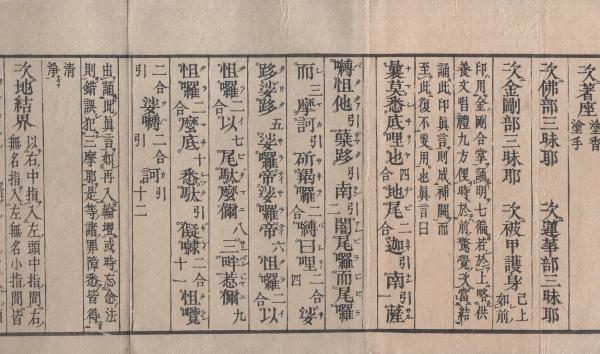 次著座 塗香 塗手
次佛部三昧耶 次蓮華部三昧耶
次金剛部三昧耶 次被甲護身 已上如前
印用金剛合掌誦明七徧若於上略供
養文唱禮九方便時於前驚覺文當結
誦此印眞言則成神闕而
至此復不要用也眞言曰
曩莫悉底哩也 合四 地尾 合二 迦南 一 薩
嚩怛他 引 蘖跢 南 引 二 闇尾囉而尾囉
而 三 摩訶 引 斫羯囉 二合 嚩日哩 二合 四 娑
跢娑跢 五 娑囉帝娑囉帝 六 怛囉 二合 以
怛囉 二合 以 七 尾馱麼儞 八 三畔惹儞 九
怛囉 二合 麼底 十 悉馱 引 儗 十一 怛覽
二合 引 娑嚩 二合 引 訶 引 十二
由誦此眞言如再入輪壇或時忘念法
則錯誤犯三摩耶是等諸罪障悉皆得
清淨
次地結界 以右中指入左頭中指間右
無名指入左無名小指間皆